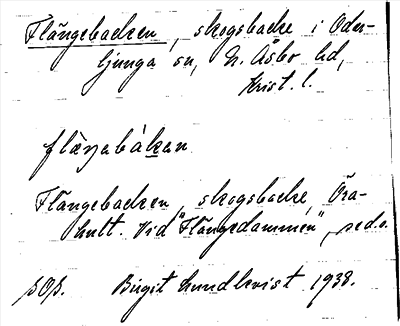 Flängebacken, skogsbacke i Oder-
ljunga sn, N. Åsbo hd,
Krist. l.
flæŋabàkan
Flängebacken, skogsbacke, Öra-
hult. Vid "Flängedammen", se d.o.
sOs. Birgit Lundkvist 1938.